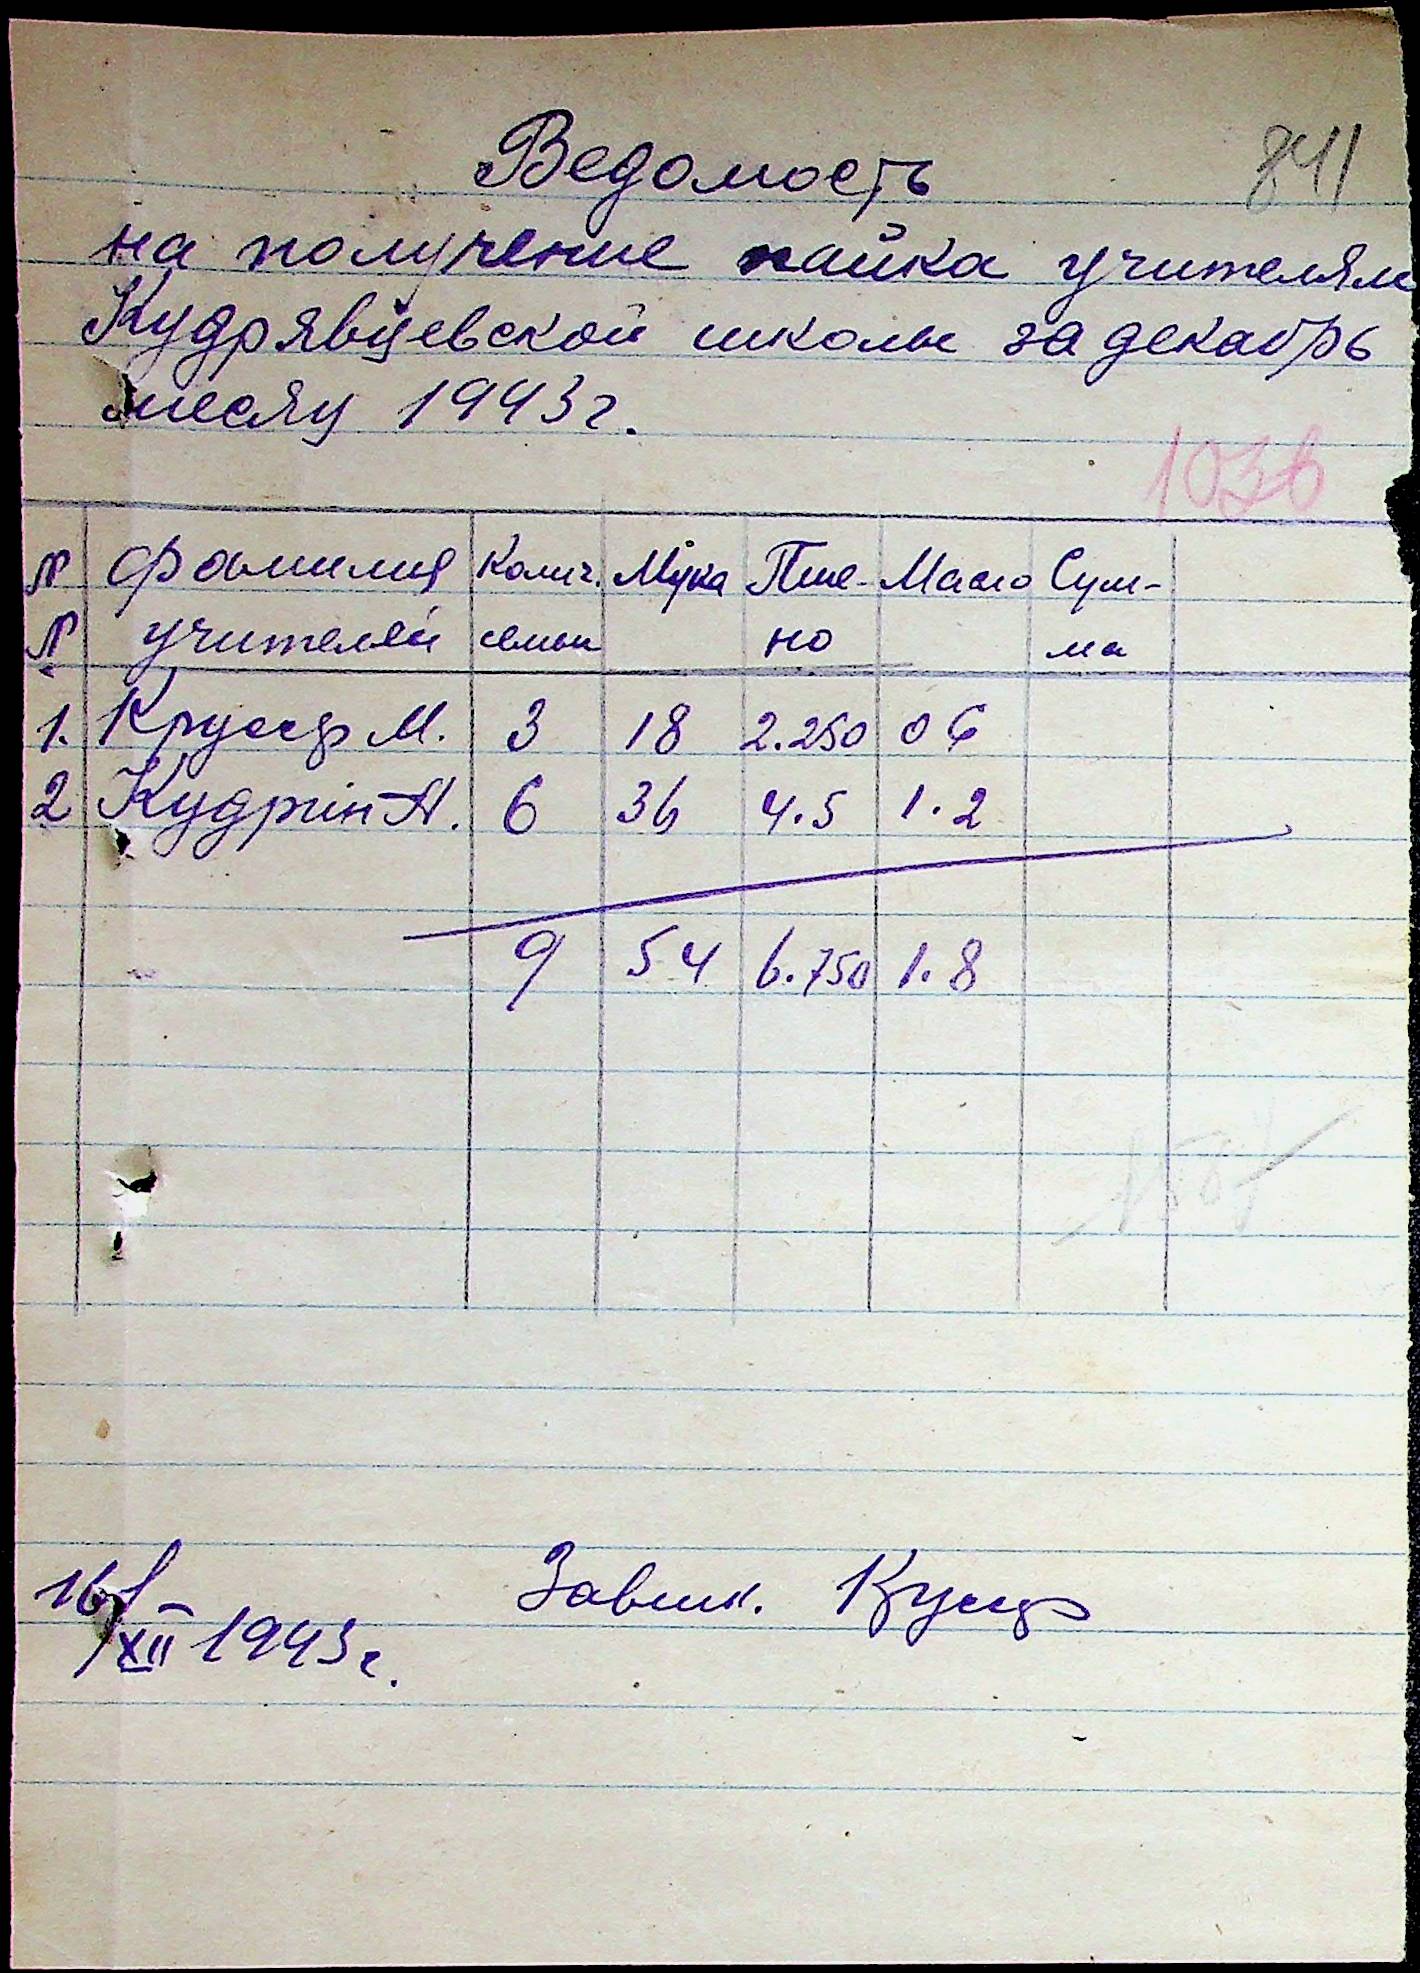 841
Ведомость
на получение пайка учителям
Кудрявцевской школы за декабрь
месяц 1943 г.
1036
№ Фамилия Колич. Мука Пше- Масло Сум-
№ учителей семьи но ма
1. М. 3 18 2.250 0 6
2 Кудрін А. 6 36 4.5 1.2
9 54 6.750 1.8
16/XII 1943 г. Завшк.